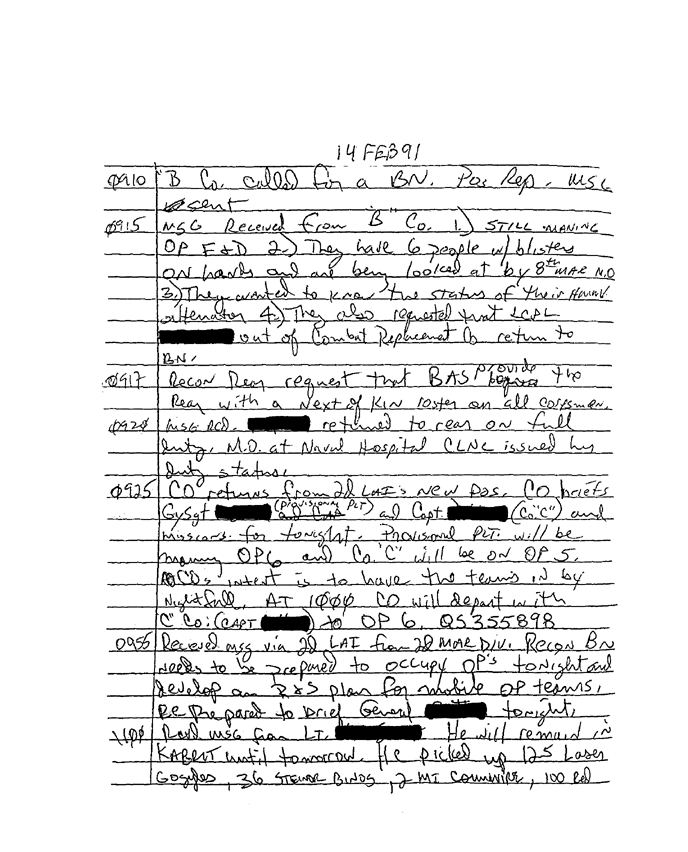 14 FEB 91
0910 "B Co. called for a BN. Pos Rep. MSG
sent
0915 MSG Received from "B" Co. 1.) STILL MANING
OP F & D 2.) They have 6 people w/ blisters
ON hands and are being looked at by 8th MAR M.O
3.) They wanted to know the status of their
alternator 4.) They also requested that LCPL
out of Combat Replacement Co return to
BN.
0917 Recon Rear request that BAS provide the
Rear with a Next of Kin roster on all corpsmen.
0920 MSG Rcd. returned to rear on full
duty, M.O. at Naval Hospital CLNC issued his
duty status.
0925 CO returns from 2d LAI's new pos. CO briefs
GySgt (Provisional PLT) and Capt (Co. "C") and
missions for tonight. Provisional PLT. will be
maning OP 6 and Co. "C" will be on OP 5.
COs intent is to have the teams in by
Nightfall. AT 1000 CO will depart with
C" Co: (CAPT ) to OP 6. QS355898
0956 Received msg via 2d LAI from 2d MAR DIV. Recon BN
needs to be prepared to occupy OP's tonight and
develop an R&S plan for mobile OP teams.
Be Prepared to brief General tonight.
1100 Rcvd MSG from LT. He will remain in
KABRIT until tomorrow. He picked up 125 Laser
Goggles, 36 STEINER BINOS, 2 MI COMMWIRE, 100 Red